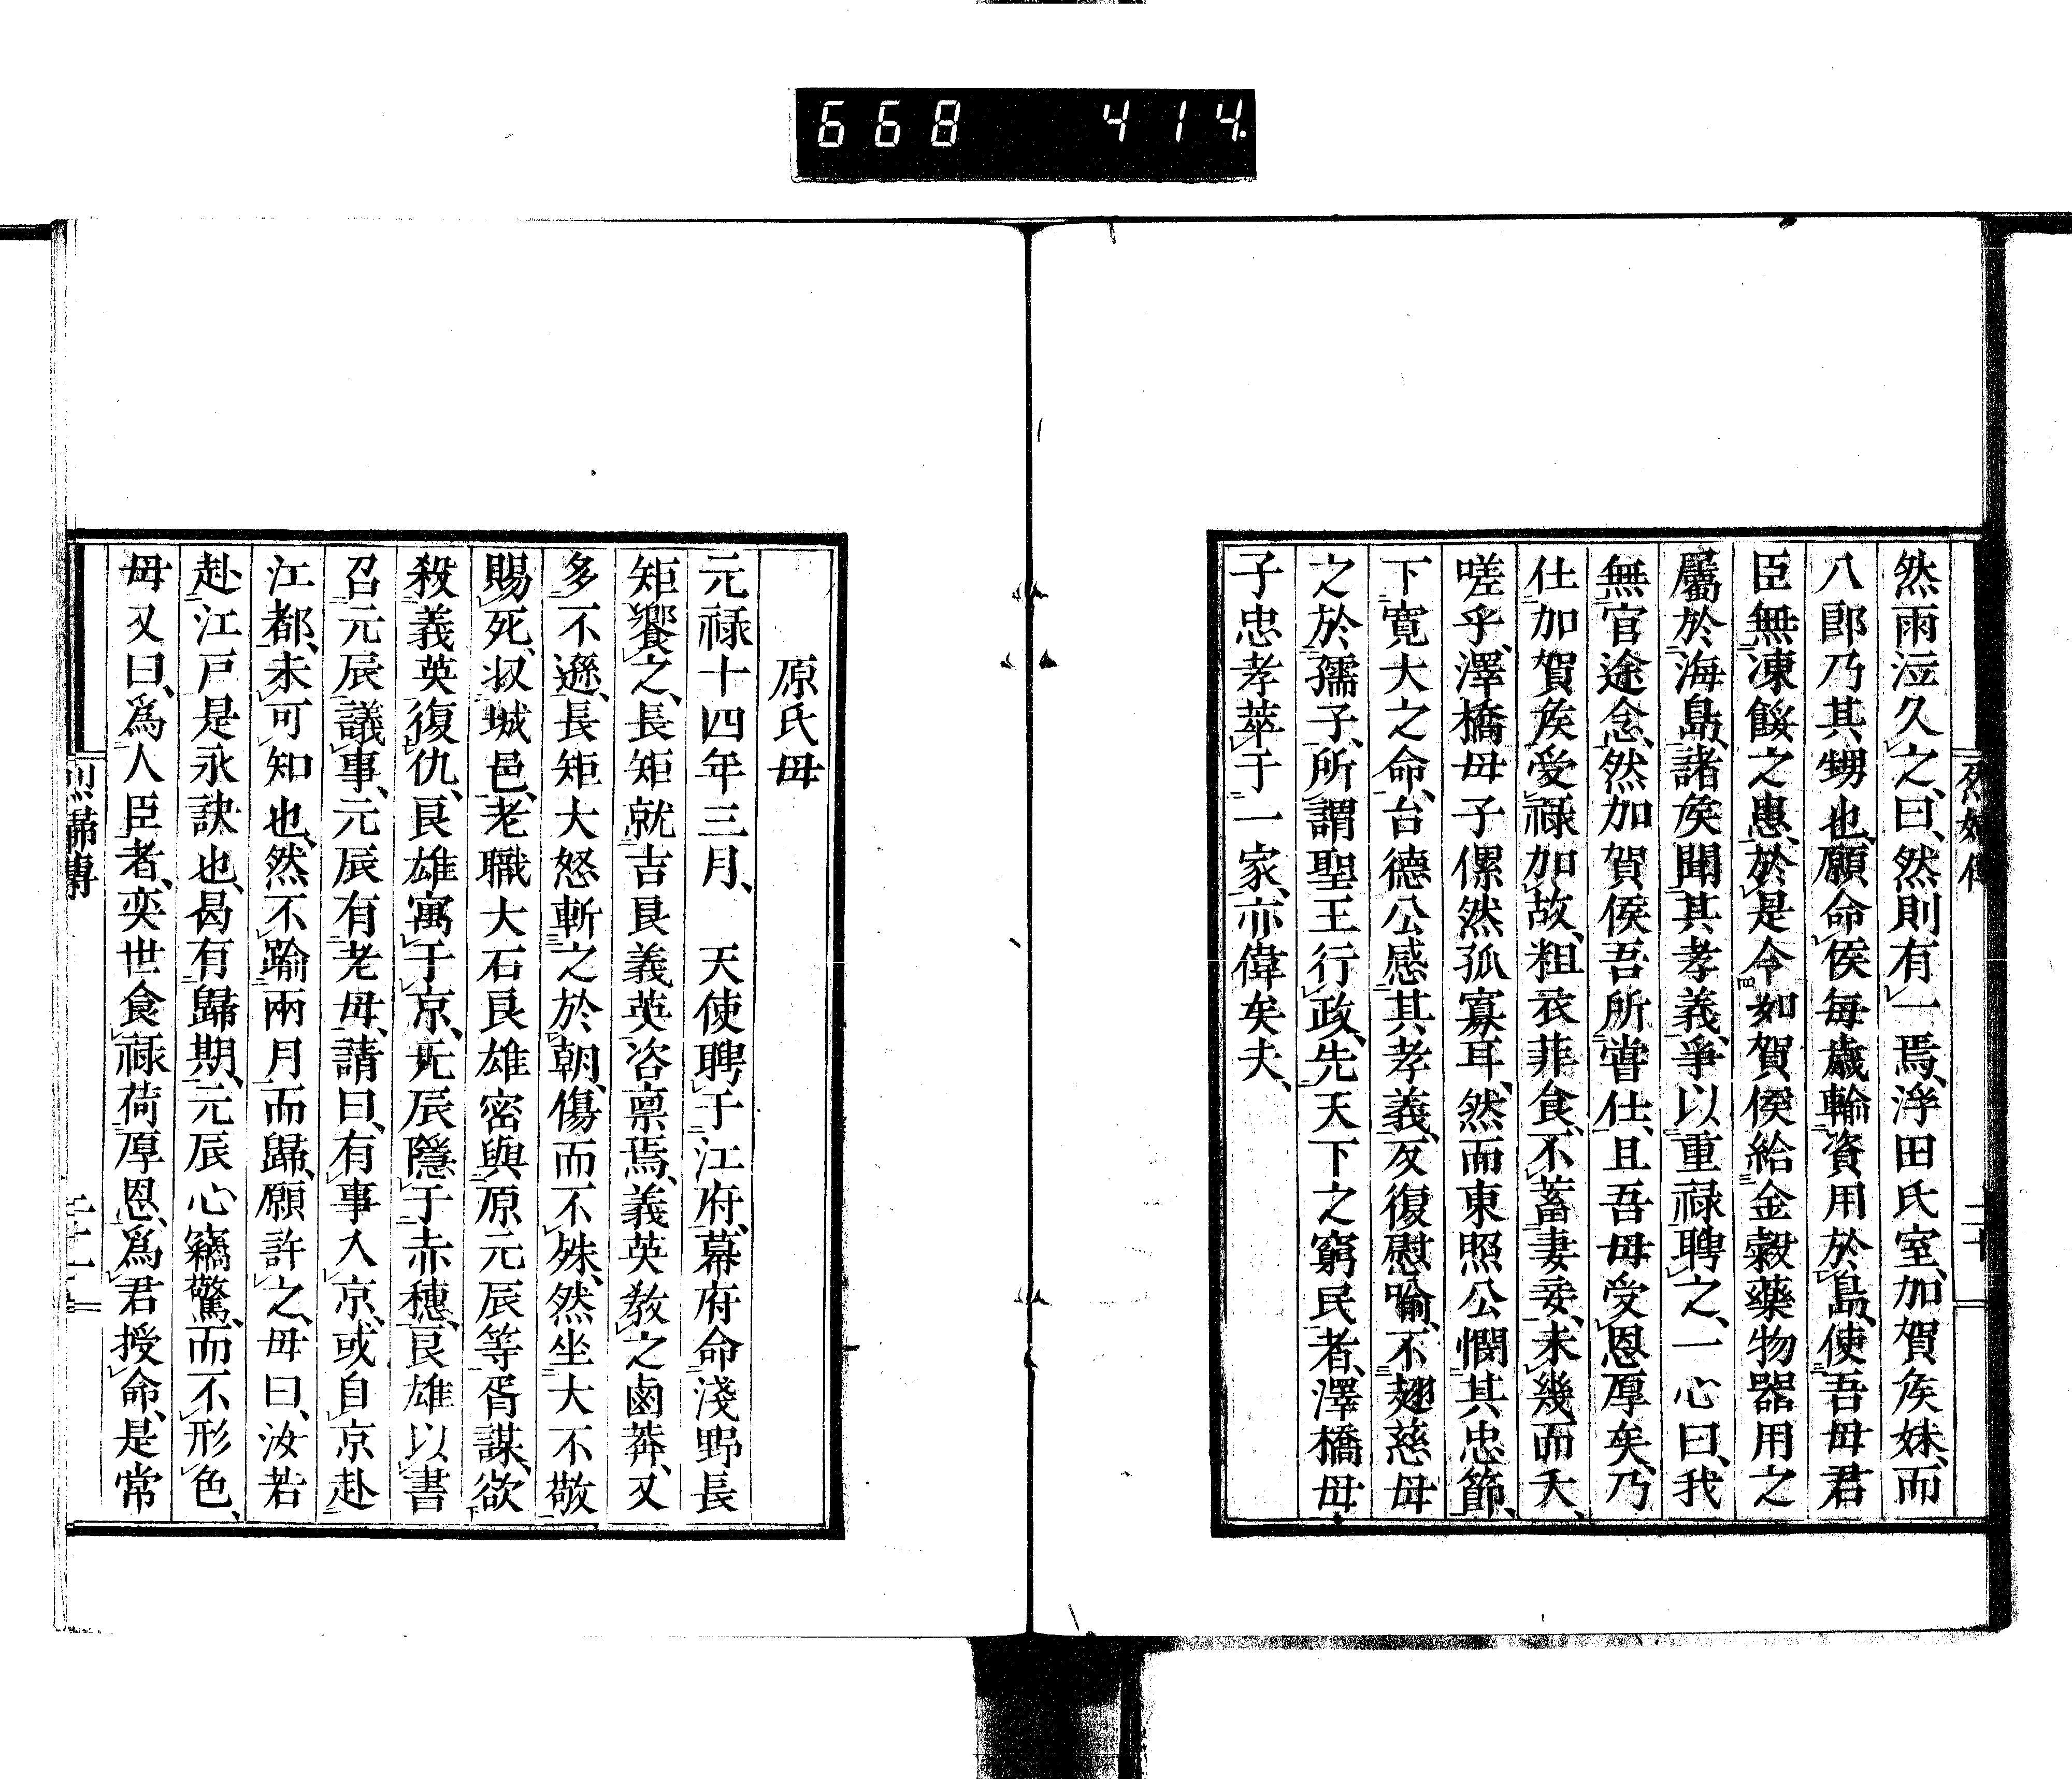 668 414
然雨泣久之、曰、然則有一焉、浮田氏室、加賀矦妹、而
八郎乃其甥也、願命侯毎歳輸資用於島、使吾毋君
臣無凍餒之患、於是令如賀侯給金穀藥物器用之
屬於海島、諸矦聞其孝義、爭以重禄聘之、一心曰、我
無官途念、然加賀侯吾所嘗仕、且吾毋受恩厚矣、乃
仕加賀矦受禄加故、粗衣菲食、不蓄妻妾、未幾而夭、
嗟乎、澤橋毋子傫然孤寡耳、然而東照公憫其忠節、
下寛大之命、台德公感其孝義、反復慰喻、不翅慈毋
之於孺子、所謂聖王行政、先天下之窮民者、澤橋毋
子忠孝萃于一家、亦偉矣夫、
二十
原氏毋
元禄十四年三月、　天使聘于江府、幕府命淺野長
矩饗之、長矩就吉良義英咨禀焉、義英教之鹵莽、又
多不遜、長矩大怒斬之於朝、傷而不殊、然坐大不敬
賜死、収城邑、老職大石良雄密與原元辰等胥謀、欲
殺義英復仇、良雄寓于京、元辰隱于赤穗、良雄以書
召元辰議事、元辰有老毋、請曰、有事入京、或自京赴
江都、未可知也、然不踰兩月而歸、願許之、毋曰、汝若
赴江戸是永訣也、曷有歸期、元辰心竊驚、而不形色、
毋又曰、爲人臣者、奕世食禄荷厚恩、爲君授命、是常